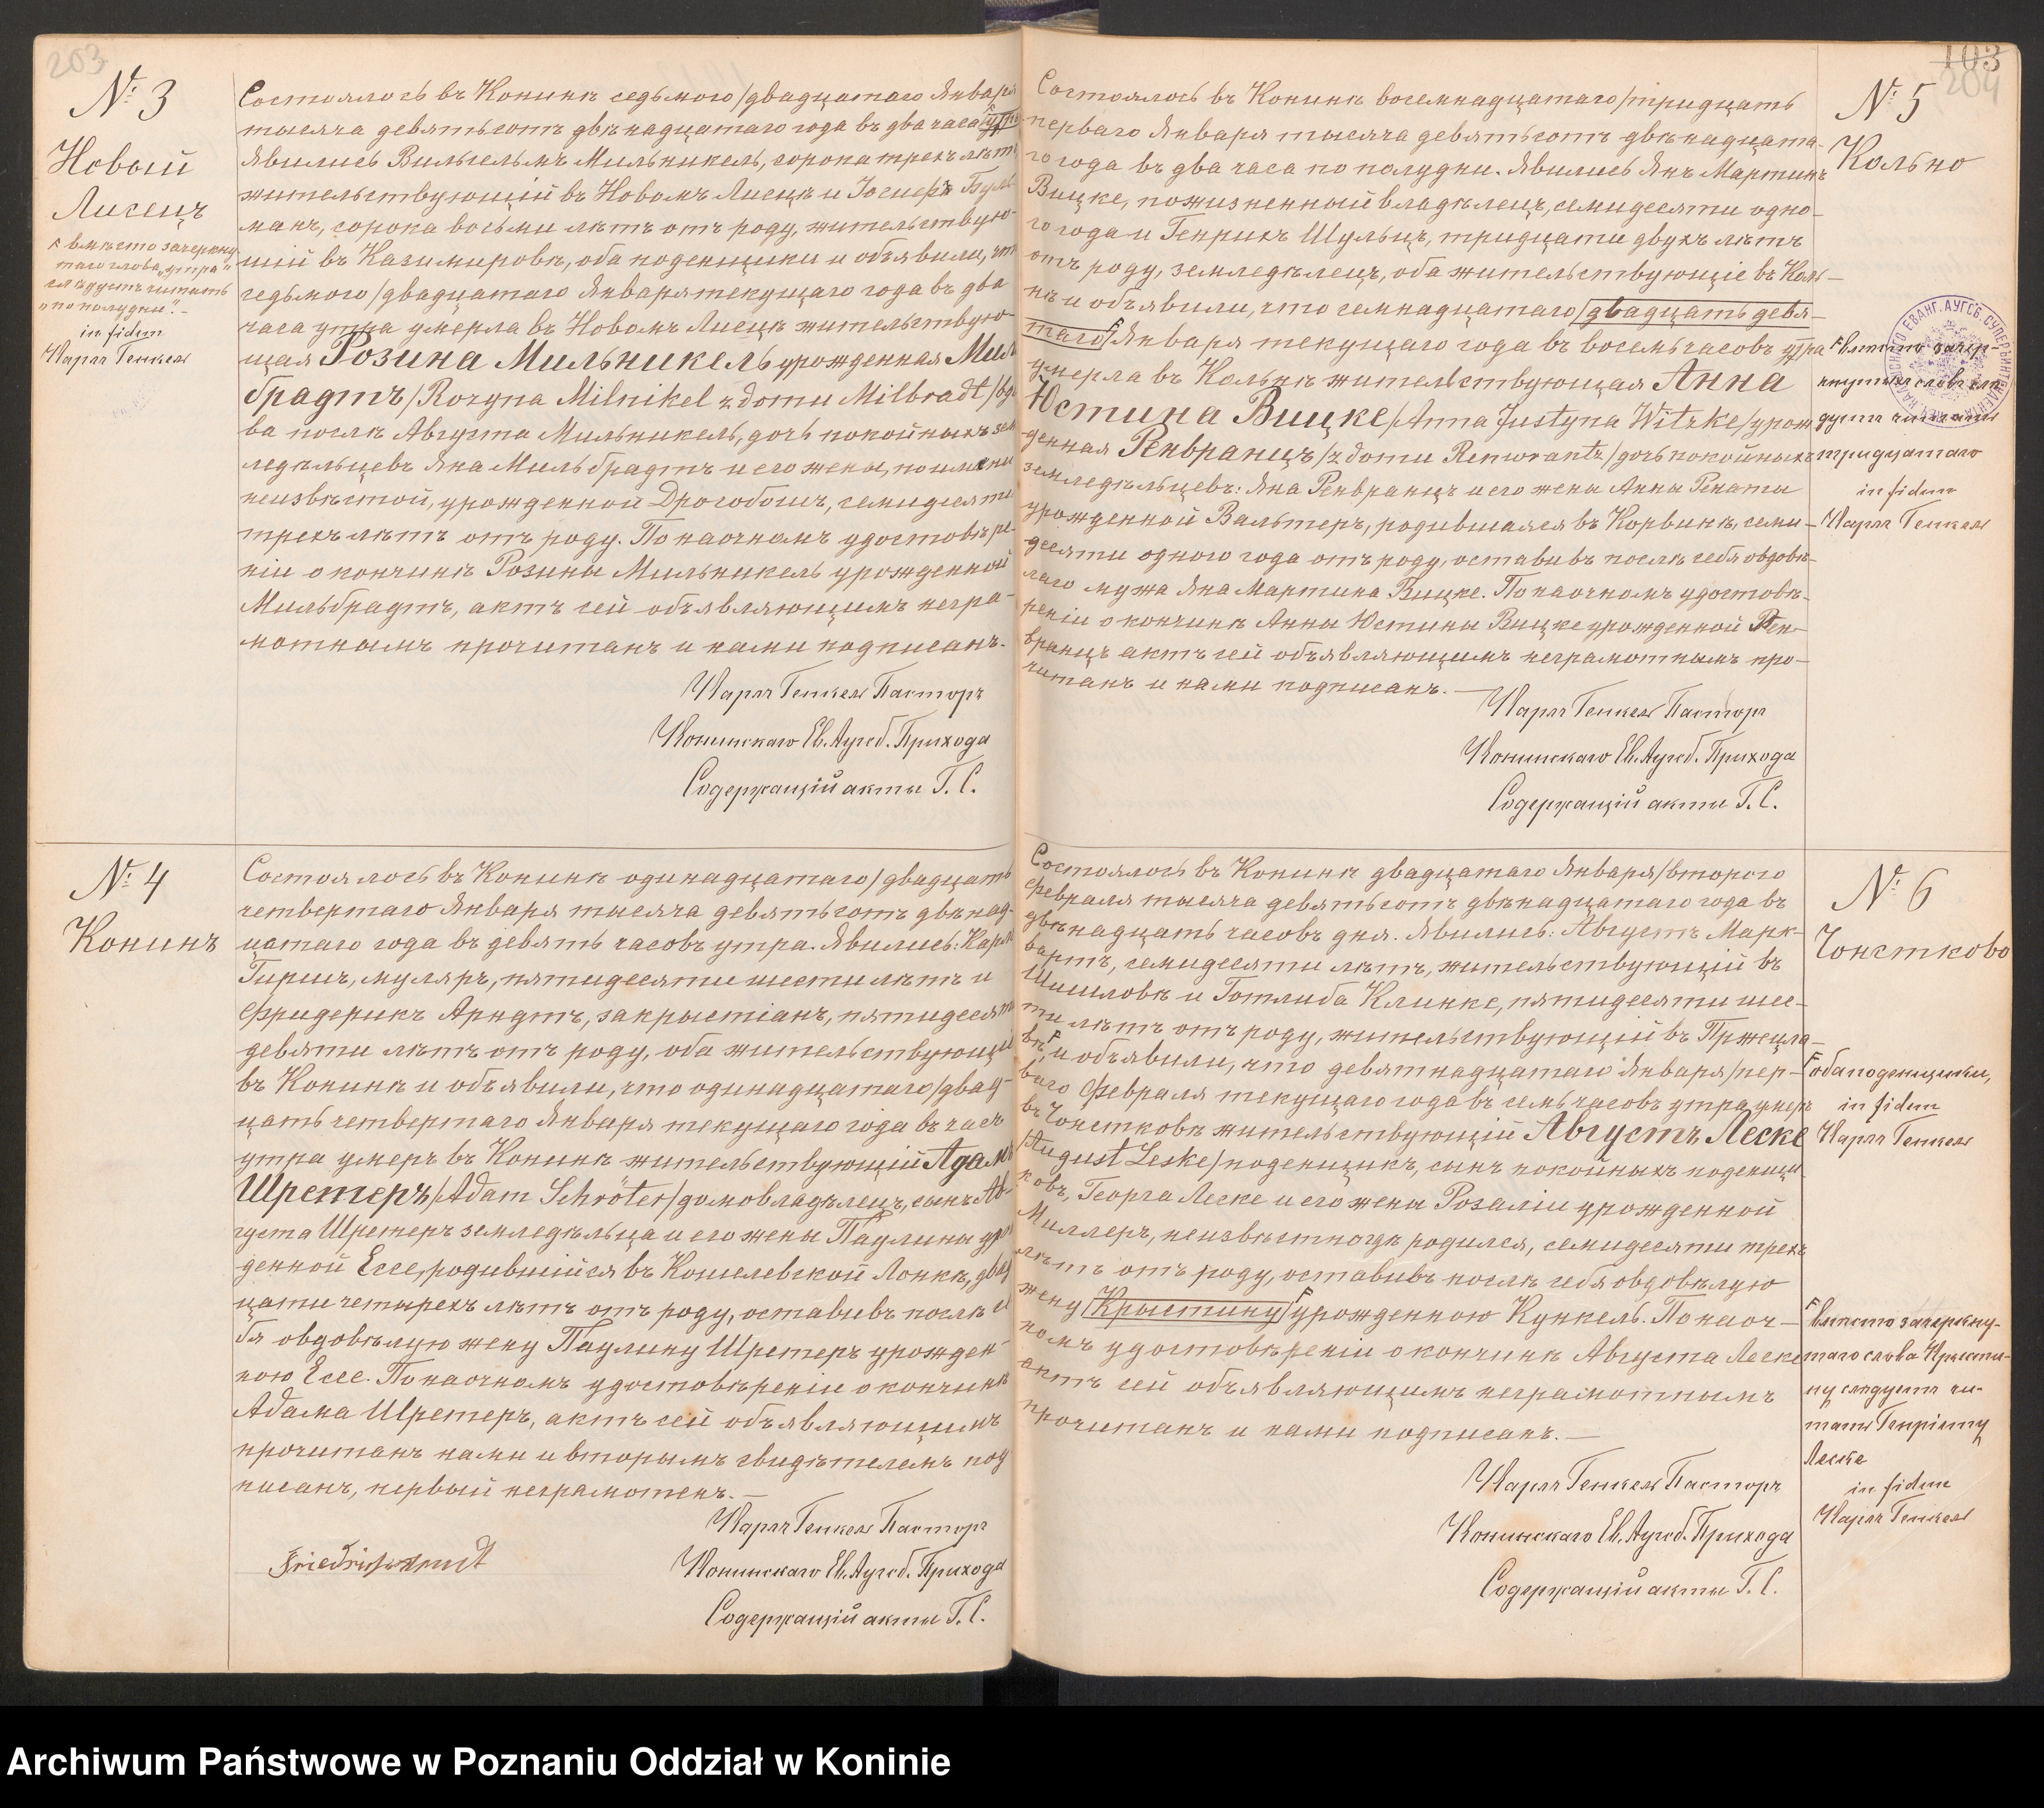 203
№ 3
Новый
Лисецъ
вмѣсто зачеркну
таго слова „утра"
слѣдуетъ читать
„по полудни".-
in fidem
Карлъ Генкель
Состоялось въ Конинѣ седьмого/двадцатаго Января
тысяча девятьсотъ двѣнадцатаго года въ два часа утра
Явились Вильгельмъ Мильникель, сорока трехъ лѣтъ
жительствующій въ Новомъ Лисецѣ и Іосифъ Буль-
манъ, сорока восьми лѣтъ отъ роду, жительствую-
щій въ Казимировѣ, оба поденщики и объявили, что
седьмого/двадцатаго Января текущаго года въ два
часа утра умерла въ Новомъ Лисецѣ жительствую-
щая Розина Мильникель урожденная Миль
брадтъ/Rozyna Milnikel z domu Milbradt/вдо
ва послѣ Августа Мильникель, дочь покойныхъ зем
ледѣльцевъ Яна Мильбрадтъ и его жены, по имени
неизвѣстной, урожденной Дрогобошъ, семидесяти
трехъ лѣтъ отъ роду. По наочномъ удостовѣре-
ніи о кончинѣ Розины Мильникель урожденной
Мильбрадтъ, актъ сей объявляющимъ негра-
мотнымъ прочитанъ и нами подписанъ.
Карлъ Генкель Пасторъ
Конинскаго Ев. Аугсб. Прихода
Содержащій акты Г. С.
№ 4
Конинъ
Состоялось въ Конинѣ одинадцатаго/двадцать
четвертаго Января тысяча девятьсотъ двѣнад-
цатаго года въ девять часовъ утра. Явились: Карлъ
Гиршъ, муляръ, пятидесяти шести лѣтъ и
Фридерикъ Арндтъ, закрыстіанъ, пятидесяти
девяти лѣтъ отъ роду, оба жительствующій
въ Конинѣ и объявили, что одинадцатаго/двад-
цать четвертаго Января текущаго года въ часъ
утра умеръ въ Конинѣ жительствующій Адамъ
Шретеръ/Adam Schröter/домовладѣлецъ, сынъ Ав-
густа Шретеръ земледѣльца и его жены Паулины уро
жденной Ессе, родившійся въ Кошелевской Лонкѣ, двад
цати четырехъ лѣтъ отъ роду, оставивъ послѣ се
бя овдовѣлую жену Паулину Шретеръ урожден-
ною Ессе. По наочномъ удостовѣреніи о кончинѣ
Адама Шретеръ, актъ сей объявляющимъ
прочитанъ нами и вторымъ свидѣтелемъ под
писанъ, первый неграмотенъ.—
Карлъ Генкель Пасторъ
Friedrich Arndt
Конинскаго Ев. Аугсб. Прихода
Содержащій акты Г. С.
103
204
№ 5
Кольно
Состоялось въ Конинѣ восемнадцатаго/тридцать
перваго Января тысяча девятьсотъ двѣнадцата-
го года въ два часа по полудни. Явились Янъ Мартинъ
Вицке, пожизненный владѣлецъ, семидесяти одно-
го года и Генрихъ Шульцъ, тридцати двухъ лѣтъ
отъ роду, земледѣлецъ, оба жительствующіе въ Коль-
нѣ и объявили, что семнадцатаго/двадцать девя-
таго/Января текущаго года въ восемь часовъ утра
умерла въ Кольнѣ жительствующая Анна
Юстина Вицке/Anna Justyna Witzke/урож
денная Ренвранцъ/z domu Renwrantz/дочь покойныхъ
земледѣльцевъ: Яна Ренвранцъ и его жены Анны Ренаты
урожденной Вальтеръ, родившаяся въ Корвинѣ, семи-
десяти одного года отъ роду, оставивъ послѣ себя овдовѣ-
лаго мужа Яна Мартина Вицке. По наочномъ удостовѣ-
реніи о кончинѣ Анны Юстины Вицке урожденной Рен-
вранцъ актъ сей объявляющимъ неграмотнымъ про-
читанъ и нами подписанъ.—
Карлъ Генкель Пасторъ
Конинскаго Ев. Аугсб. Прихода
Содержащій акты Г. С.
вмѣсто зачер-
кнутыхъ словъ слѣ
дуетъ читать
тридцатаго
in fidem
Карлъ Генкель
№ 6
Чонстково
Состоялось въ Конинѣ двадцатаго Января/второго
Февраля тысяча девятьсотъ двѣнадцатаго года въ
двѣнадцать часовъ дня. Явились: Августъ Марк-
вартъ, семидесяти лѣтъ, жительствующій въ
Шишловѣ и Готлиба Клинке, пятидесяти шес-
ти лѣтъ отъ роду, жительствующій въ Пржецла-
вѣ, и объявили, что девятнадцатаго Января/пер-
ваго Февраля текущаго года въ семь часовъ утра умеръ
въ Чонстковѣ жительствующій Августъ Леске
/August Leske/поденщикъ, сынъ покойныхъ поденщи
ковъ, Георга Леске и его жены Розаліи урожденной
Миллеръ, неизвѣстно гдѣ родился, семидесяти трехъ
лѣтъ отъ роду, оставивъ послѣ себя овдовѣлую
жену Крыстину урожденною Кункель. По наоч-
номъ удостовѣреніи о кончинѣ Августа Леске
актъ сей объявляющимъ неграмотнымъ
прочитанъ и нами подписанъ.—
Карлъ Генкель Пасторъ
Конинскаго Ев. Аугсб. Прихода
Содержащій акты Г. С.
оба поденщики,
in fidem
Карлъ Генкель
вмѣсто зачеркну-
таго слова Крысти-
ну слѣдуетъ чи-
тать Генріету
Леске
in fidem
Карлъ Генкель
Archiwum Państwowe w Poznaniu Oddział w Koninie